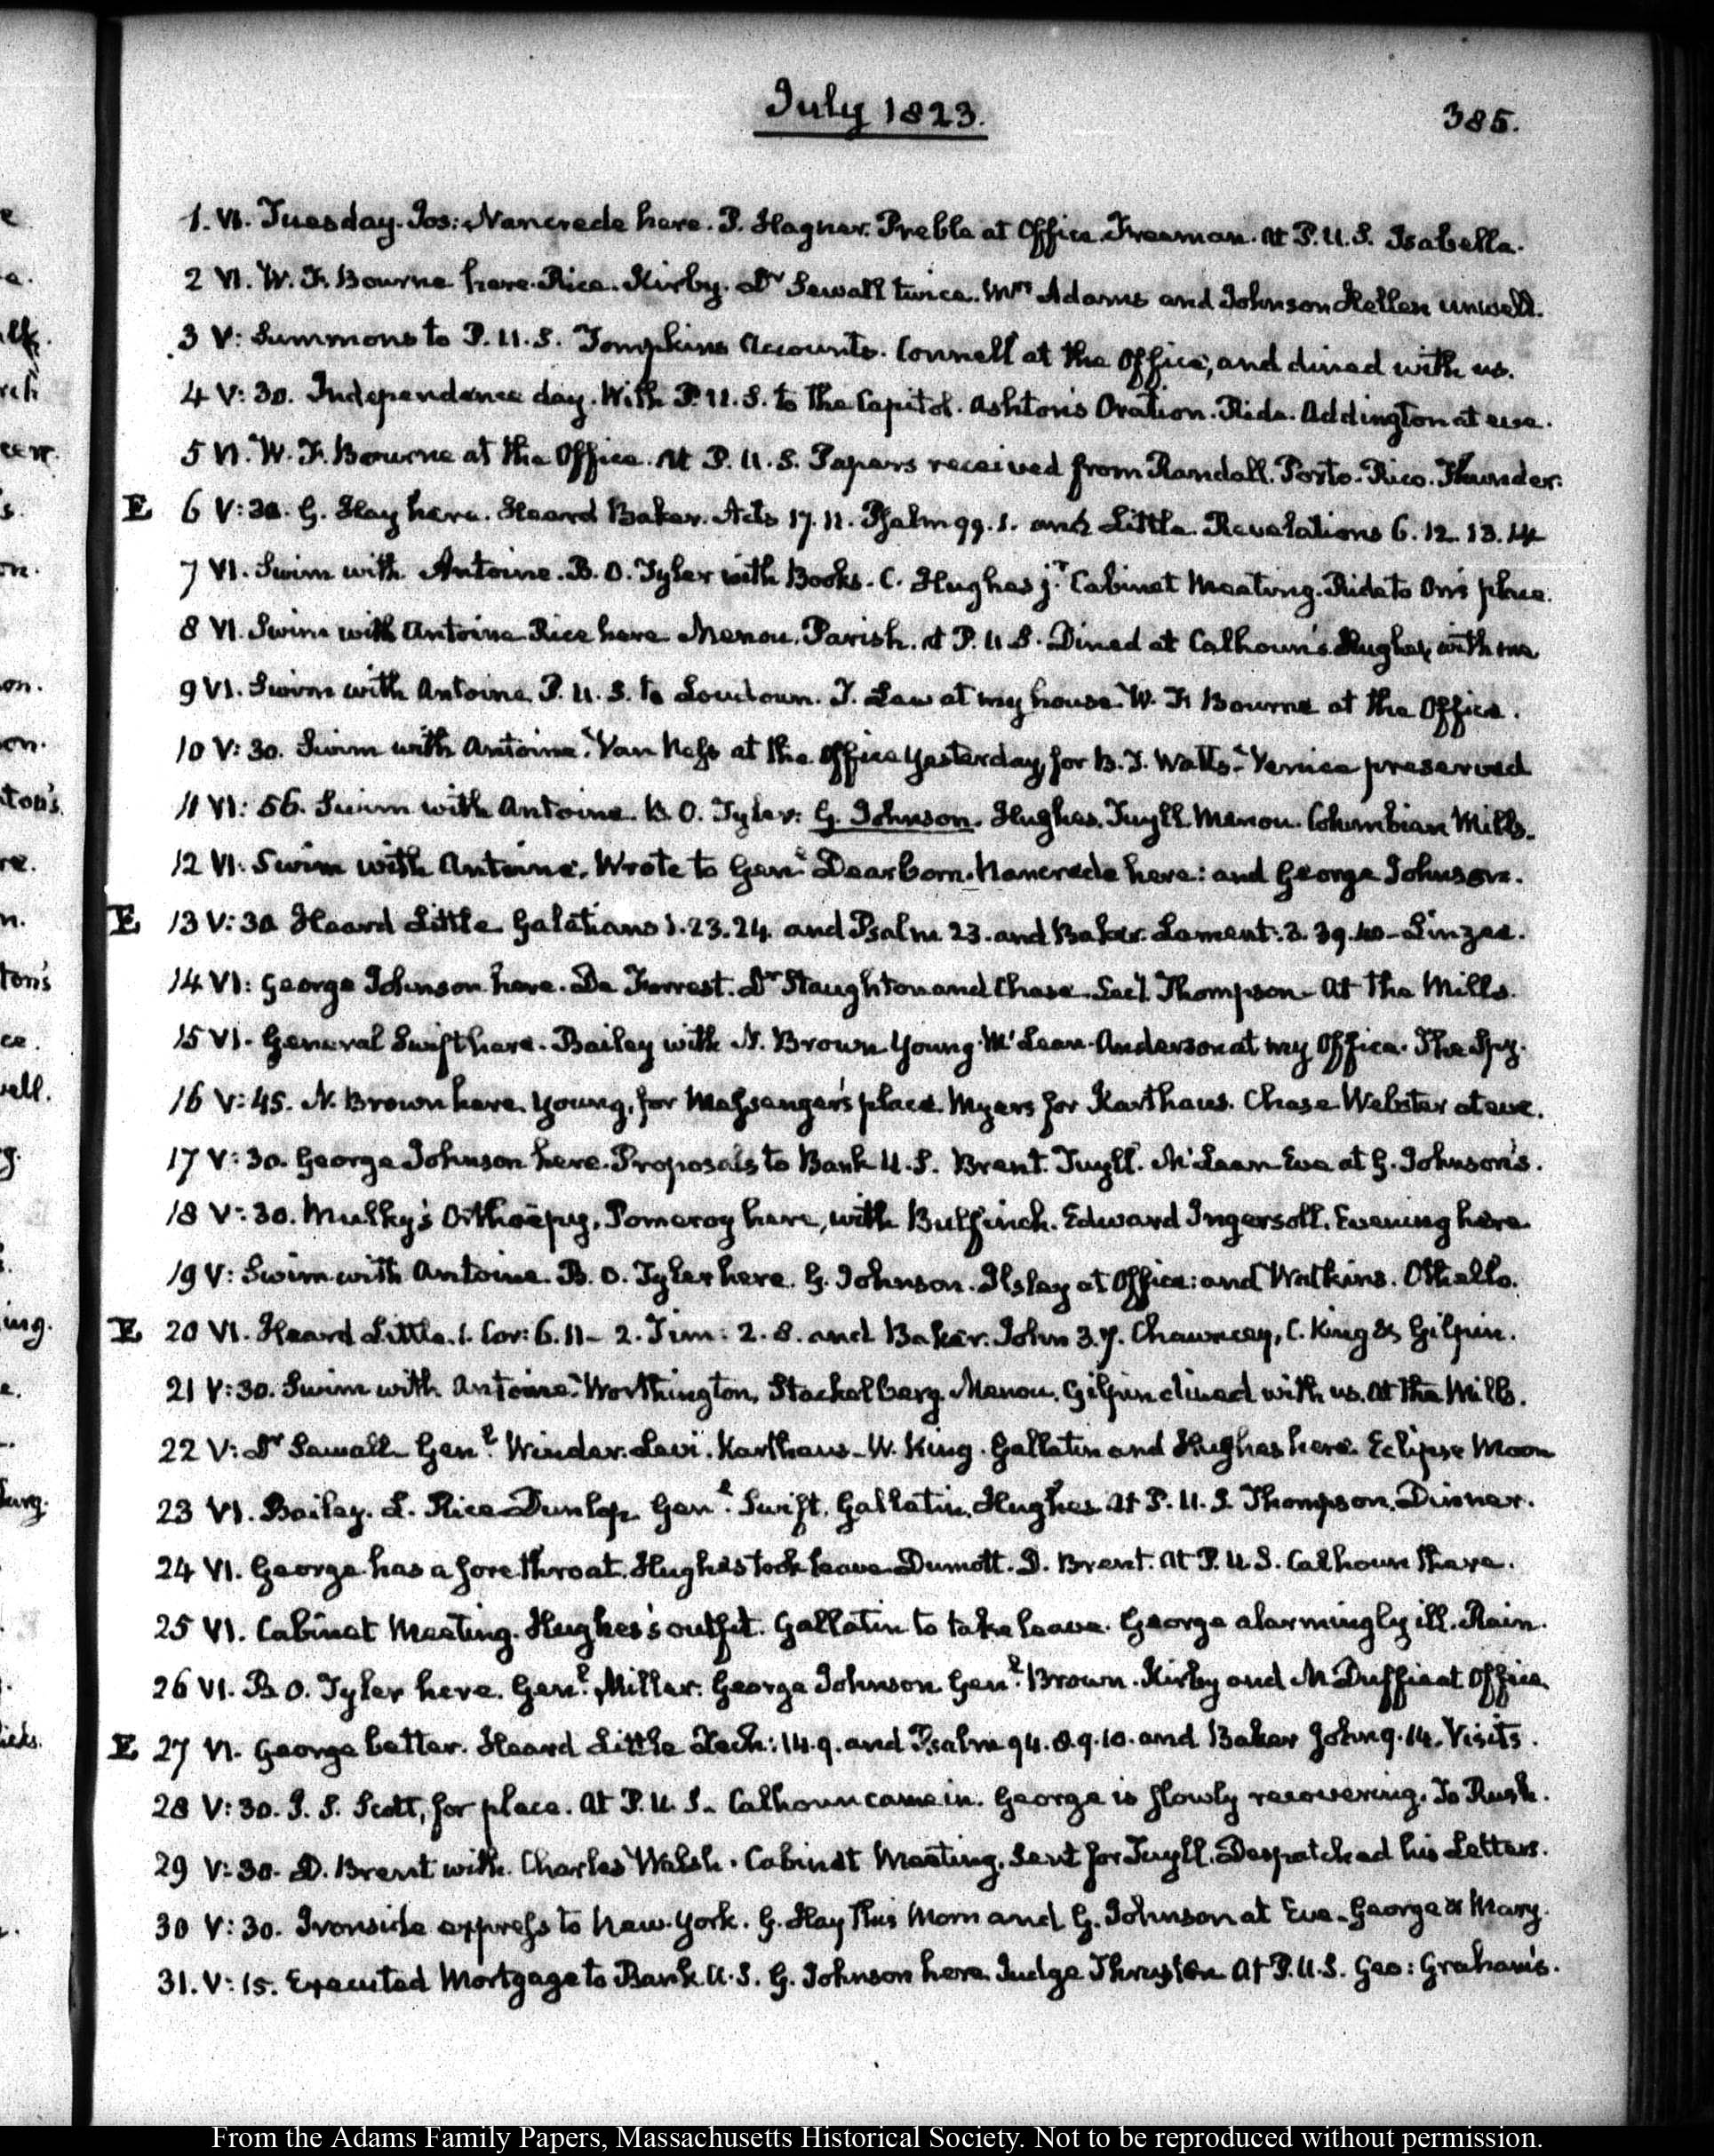 July 1823.
385.
1. VI. Tuesday. Jos: Nancrede here. P. Hagner. Preble at Office. Freeman. At P.U.S. Isabella.
2 VI. W. F. Bourne here. Rice. Kirby. Dr Sewall twice. Mrs Adams and Johnson Hellen unwell.
3 V: Summons to P.U.S. Tompkins Accounts. Connell at the Office, and dined with us.
4 V:30. Independence day. With P.U.S. to the Capitol. Ashton's Oration. Ride. Addington at eve.
5 VI. W. F. Bourne at the Office. At P.U.S. Papers received from Randall. Porto-Rico. Thunder.
E 6 V:30. G. Hay here. Heard Baker. Acts 17.11. Psalm 99.1. and Little. Revelations 6.12.13.14
7 VI. Swim with Antoine. B. O. Tyler with Books. C. Hughes jr. Cabinet Meeting. Ride to Orr's place.
8 VI. Swim with Antoine Rice here Menou. Parish. at P.U.S. Dined at Calhoun's. Hughes with me
9 VI. Swim with Antoine. P.U.S. to Loudoun. T. Law at my house. W. F. Bourne at the Office.
10 V:30. Swim with Antoine. Van Ness at the Office yesterday, for B. J. Watts. Venice preserved
11 VI:56. Swim with Antoine. B. O. Tyler. G. Johnson. Hughes. Tuyll. Menou. Columbian Mills.
12 VI. Swim with Antoine. Wrote to Genl Dearborn. Nancrede here: and George Johnson.
E 13 V:30 Heard Little. Galatians 1.23.24. and Psalm 23. and Baker. Lament: 3.39.40 - Linzee.
14 VI: George Johnson here. De Forrest. Dr Staughton and Chase. Secy. Thompson - At the Mills.
15 VI. General Swift here. Bailey with N. Brown Young. McLean. Anderson at my Office. The Spy.
16 V:45. N. Brown here. Young, for Messenger's place. Myers for Karthaus. Chase Webster at eve.
17 V:30. George Johnson here. Proposals to Bank U.S. Brent. Tuyll. McLean Eve at G. Johnson's.
18 V:30. Mulky's Orthoëpy. Pomeroy here, with Bulfinch. Edward Ingersoll. Evening here
19 V: Swim with Antoine. B. O. Tyler here. G. Johnson. Ilsley at Office: and Watkins. Othello.
E 20 VI. Heard Little. 1. Cor: 6.11 - 2. Tim: 2.8. and Baker. John 3.7. Chauncey, C. King & Gilpin.
21 V:30. Swim with Antoine. Worthington, Stackelberg. Menou. Gilpin dined with us. At the Mills.
22 V: Dr Sewall Genl Winder. Levi. Karthaus - W. King. Gallatin and Hughes here. Eclipse Moon
23 VI. Bailey. L. Rice Dunlap. Genl Swift, Gallatin, Hughes. At P.U.S. Thompson. Dinner.
24 VI. George has a sore throat. Hughes took leave. Dumott. D. Brent. At P.U.S. Calhoun there.
25 VI. Cabinet Meeting. Hughes's outfit. Gallatin to take leave. George alarmingly ill. Rain.
26 VI. B. O. Tyler here. Genl Miller. George Johnson Genl Brown. Kirby and McDuffie at Office.
E 27 VI. George better. Heard Little Zech: 14.9. and Psalm 94.8.9.10. and Baker John 9.14. Visits.
28 V:30. J. S. Scott, for place. At P.U.S. Calhoun came in. George is slowly recovering. To Rush.
29 V:30. D. Brent with Charles Walsh. Cabinet Meeting. Sent for Tuyll. Despatched his Letters.
30 V:30. Ironside express to New-York. G. Hay this Morn and G. Johnson at Eve. George & Mary.
31. V:15. Executed Mortgage to Bank U.S. G. Johnson here. Judge Thruston At P.U.S. Geo: Graham's.
From the Adams Family Papers, Massachusetts Historical Society. Not to be reproduced without permission.